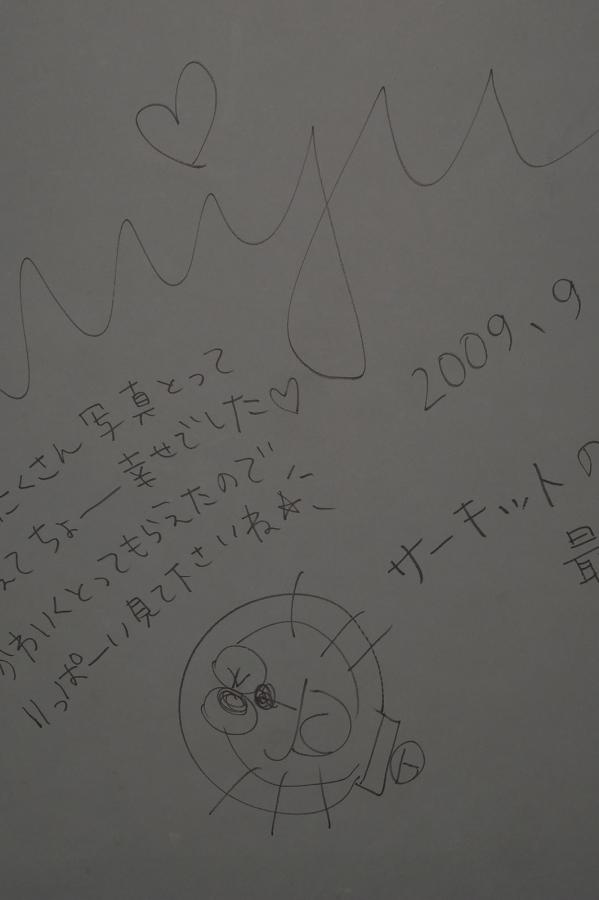 miyu
2009、9
たくさん写真とって
えてちょー幸せでした♡
かわいくとってもらえたので
いっぱーい見て下さいね☆
サーキットの
最